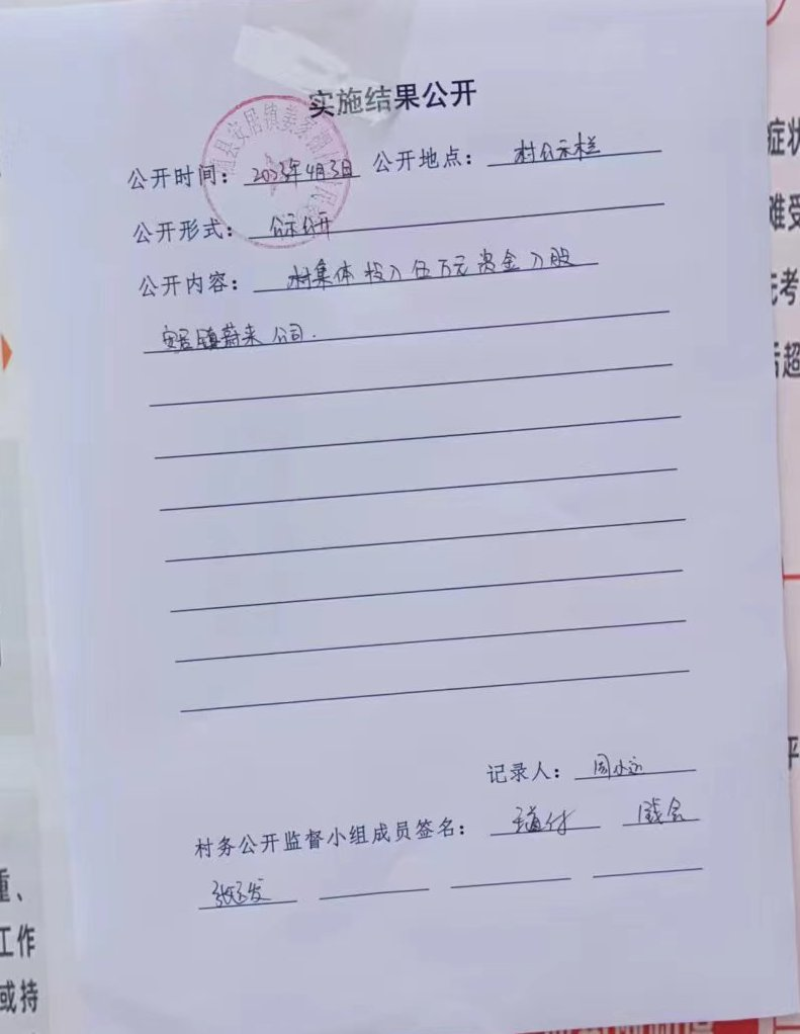 实施结果公开
公开时间：2023年4月3日 公开地点：村公示栏
公开形式：公示公开
公开内容：村集体投入伍万元资金入股
安居镇蔚来公司.
记录人：周小运
村务公开监督小组成员签名：
症状
难受
先考
后超
平
重、
工作
或持